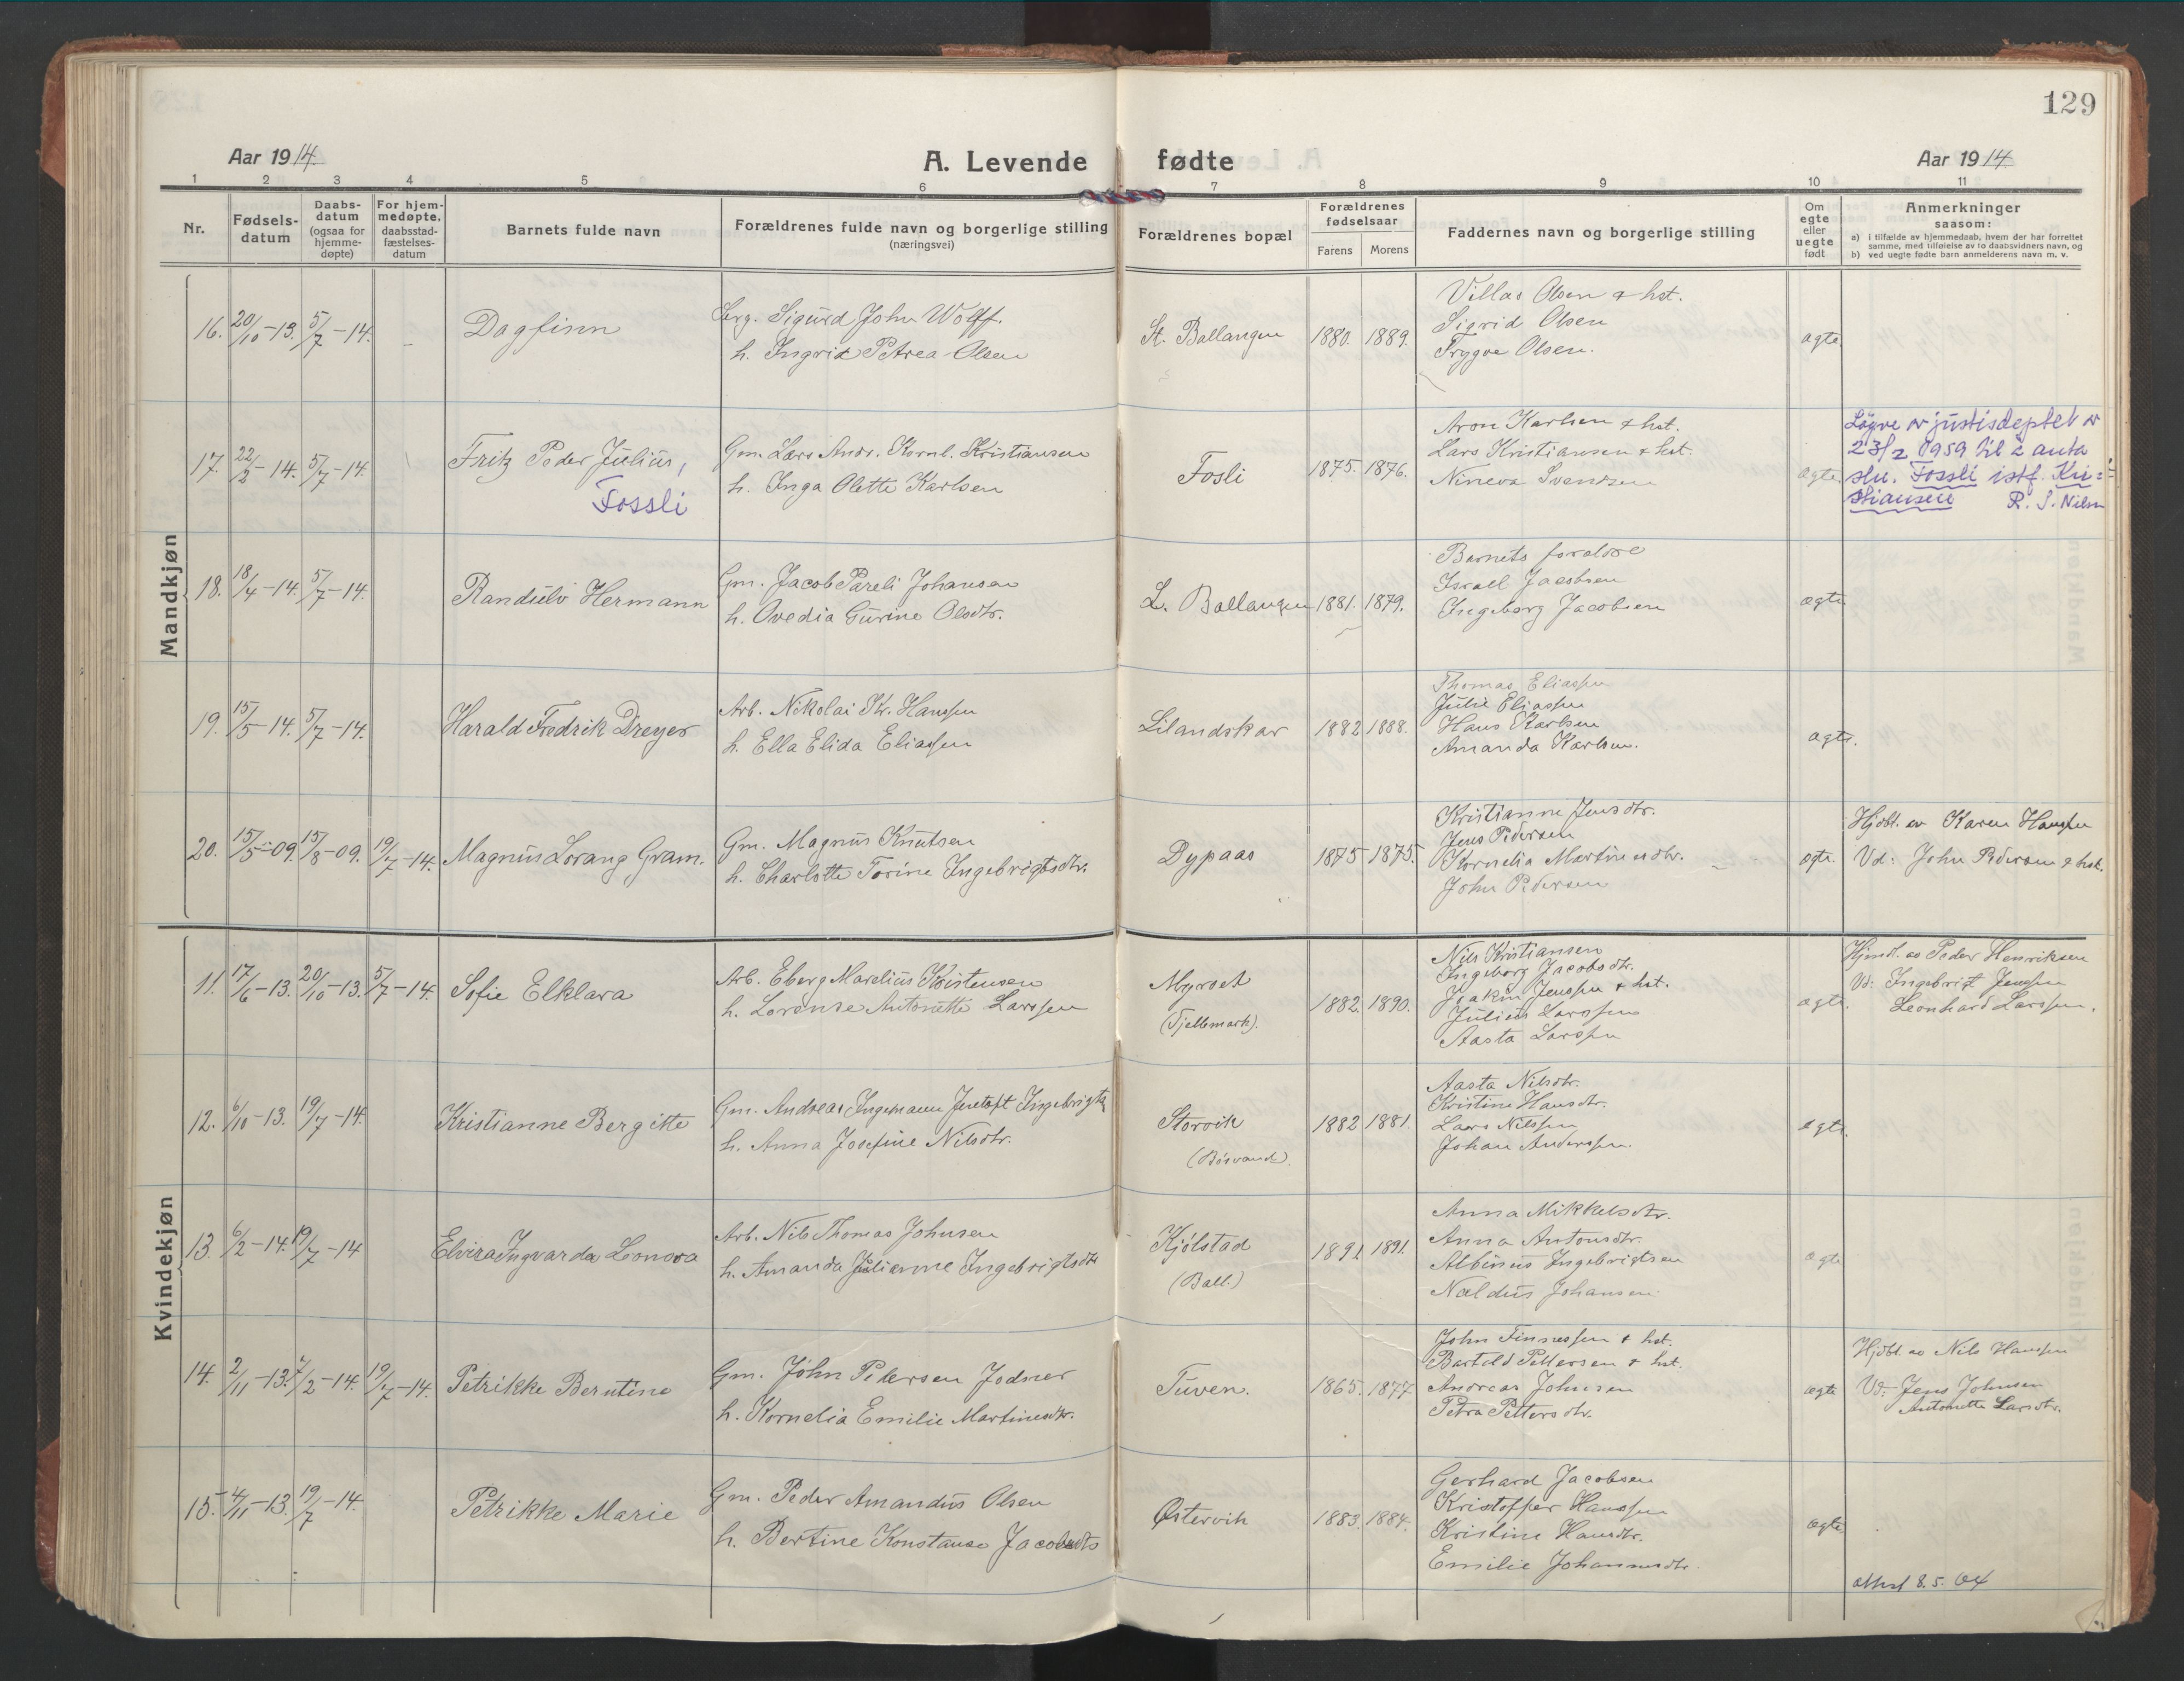 129
Aar 1914.
A. Levende fødte
Aar 1914
1 2 3 4 5 6 7 8 9 10 11
Nr.
Fødsels-
datum
Daabs-
datum
(ogsaa for
hjemme-
døpte)
For hjem-
medøpte,
daabsstad-
fæstelses-
datum
Barnets fulde navn
Forældrenes fulde navn og borgerlige stilling
(næringsvei)
Forældrenes bopæl
Forældrenes
fødselsaar
Farens
Morens
Faddernes navn og borgerlige stilling
Om
egte
eller
uegte
født
Anmerkninger
saasom:
a) i tilfælde av hjemmedaab, hvem der har forrettet
samme, med tilføielse av to daabsvidners navn, og
b) ved uegte fødte barn anmelderens navn m. v.
Mandkjøn
16. 20/10-13. 5/7-14. -
Dagfinn
Sigurd John Wolff.
h. Ingrid Petrea Olsen
St. Ballangen
1880. 1889.
Villas Olsen & hst.
Sigrid Olsen
Trygve Olsen.
ægte.
17. 22/2-14. 5/7-14.
Fritz Peder Julius,
Fossli
Gm. Lars Andr. Kornl. Kristiansen
h. Inga Olette Karlsen
Fosli
1875. 1876.
Aron Karlsen & hst.
Lars Kristiansen & hst.
Nineva Svendsen
ægte.
Løyve av justisdeptet av
23/2 1959 til å anta
sln. Fossli istf. Kri=
stiansen R. S. Nilsen
18. 18/4-14. 5/7-14.
Randulv Hermann
Gm. Jacob Pareli Johansen
h. Ovedia Gurine Olsdtr.
L. Ballangen
1881. 1879.
Barnets forældre
Israel Jacobsen
Ingeborg Jacobsen
ægte
19. 15/5-14. 5/7-14.
Harald Fredrik Dreyer
Arb. Nikolai Kr. Hanssen
h. Ella Elida Eliassen
Lilandskar
1882 1888.
Thomas Eliassen
Julie Eliassen
Hans Karlsen
Amanda Karlsen.
ægte.
20. 15/5-09. 15/8-09. 19/7-14.
Magnus Lorang Gram.
Gm. Magnus Knutsen
h. Charlotte Torine Ingebrigtsdtr.
Dypaas
1875 1875.
Kristianne Jensdtr.
Jens Pedersen
Kornelia Martinesdtr.
John Pedersen
ægte.
Hjdbt. av Karen Hanssen
Vd: John Pedersen & hst.
Kvindekjøn
11. 17/6-13. 20/10-13. 5/7-14.
Sofie Elklara
Arb. Eberg Marelius Kristensen
h. Lorense Antonette Larssen
Myrset
(Fjellmark).
1882. 1890.
Nils Kristiansen
Ingeborg Jacobsdtr.
Joakin Jenssen & hst.
Julius Larssen
Aasta Larssen
ægte.
Hjmdt. av Peder Henriksen
Vd: Ingebrigt Jenssen
Leonhard Larssen.
12. 6/10-13. 19/7-14.
Kristianne Bergitte
Gm. Andreas Ingemann Jentoft Ingebrigts.
h. Anna Josefine Nilsdtr.
Storvik
(Børsvand).
1882 1881.
Aasta Nilsdtr.
Kristine Hansdtr.
Lars Nilssen
Johan Anderssen.
ægte.
13. 6/2-14. 19/7-14
Elvira Ingvarda Lenora
Arb. Nils Thomas Johnsen
h. Amanda Julianne Ingebrigtsdtr
Kjølstad
(Ball.)
1891. 1891.
Anna Mikkelsdtr.
Anna Antonsdtr.
Albinus Ingebrigtsen
Naldus Johansen
ægte
14. 2/11-13. 7/2-14. 19/7-14.
Petrikke Berntine
Gm. John Pedersen Jodner
h. Kornelia Emilie Martinesdtr.
Tuven.
1865. 1877
John Finnessen & hst.
Bartold Pettersen & hst.
Andreas Johnsen
Petra Pettersdtr.
ægte
Hjdbt. av Nils Hanssen
Vd: Jens Johnsen
Antonette Larsdtr.
15. 4/11-13. 19/7-14.
Petrikke Marie
Gm. Peder Amandus Olsen
h. Bertine Konstanse Jacobsdtr
Østervik
1883. 1884.
Gerhard Jacobsen
Kristoffer Hanssen
Kristine Hansdtr.
Emilie Johannesdtr.
ægte
attest 8.5.64